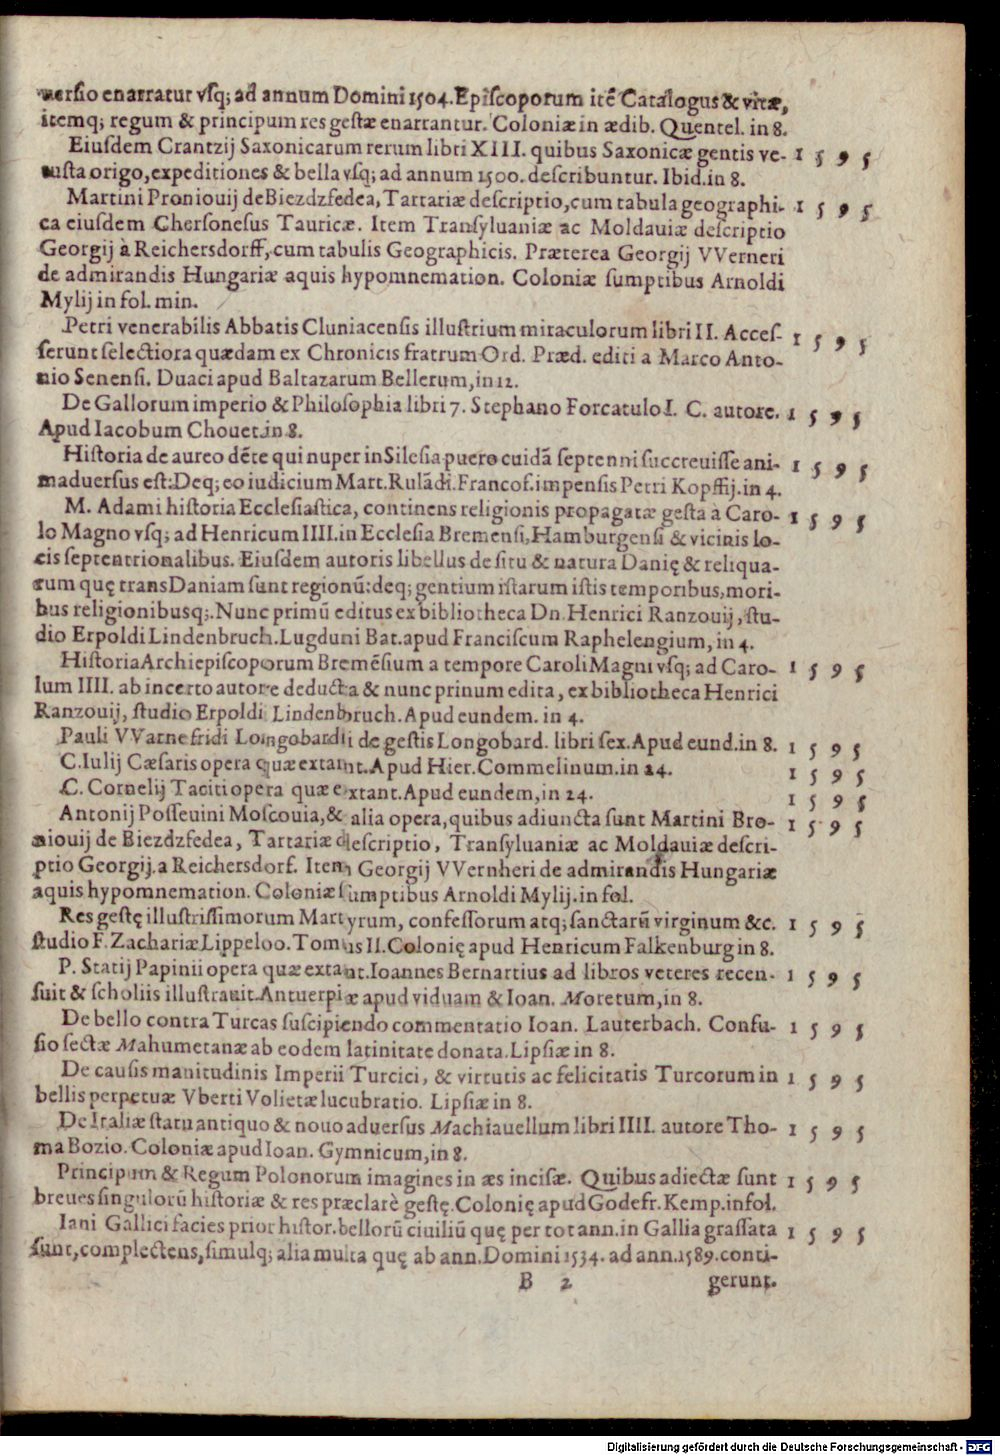 uersio enarratur vsq; ad annum Domini 1504. Episcoporum itē Catalogus & vitæ,
itemq; regum & principum res gestæ enarrantur. Coloniæ in ædib. Quentel. in 8.
Eiusdem Crantzij Saxonicarum rerum libri XIII. quibus Saxonicæ gentis ve- 1595
tusta origo, expeditiones & bella vsq; ad annum 1500. describuntur. Ibid. in 8.
Martini Proniouij de Biezdzfedea, Tartariæ descriptio, cum tabula geographi- 1595
ca eiusdem Chersonesus Tauricæ. Item Transyluaniæ ac Moldauiæ descriptio
Georgij à Reichersdorff, cum tabulis Geographicis. Præterea Georgij VVerneri
de admirandis Hungariæ aquis hypomnemation. Coloniæ sumptibus Arnoldi
Mylij in fol. min.
Petri venerabilis Abbatis Cluniacensis illustrium miraculorum libri II. Acces- 1595
serunt selectiora quædam ex Chronicis fratrum Ord. Præd. editi a Marco Anto-
nio Senensi. Duaci apud Baltazarum Bellerum, in 12.
De Gallorum imperio & Philosophia libri 7. Stephano Forcatulo I. C. autore. 1595
Apud Iacobum Chouet. in 8.
Historia de aureo dēte qui nuper in Silesia puero cuidā septenni succreuisse ani- 1595
maduersus est: Deq; eo iudicium Mart. Rulādi. Francof. impensis Petri Kopffij. in 4.
M. Adami historia Ecclesiastica, continens religionis propagatæ gesta à Caro- 1595
lo Magno vsq; ad Henricum IIII. in Ecclesia Bremensi, Hamburgensi & vicinis lo-
cis septentrionalibus. Eiusdem autoris libellus de situ & natura Danię & reliqua-
rum quę trans Daniam sunt regionū: deq; gentium istarum istis temporibus, mori-
bus religionibusq;. Nunc primū editus ex bibliotheca Dn. Henrici Ranzouij, stu-
dio Erpoldi Lindenbruch. Lugduni Bat. apud Franciscum Raphelengium, in 4.
Historia Archiepiscoporum Bremēsium a tempore Caroli Magni vsq; ad Caro- 1595
lum IIII. ab incerto autore deducta & nunc prinum edita, ex bibliotheca Henrici
Ranzouij, studio Erpoldi Lindenbruch. Apud eundem. in 4.
Pauli VVarnefridi Longobardi de gestis Longobard. libri sex. Apud eund. in 8. 1595
C. Iulij Cæsaris opera quæ extant. Apud Hier. Commelinum. in 24. 1595
C. Cornelij Taciti opera quæ extant. Apud eundem, in 24. 1595
Antonij Posseuini Moscouia, & alia opera, quibus adiuncta sunt Martini Bro- 1595
niouij de Biezdzfedea, Tartariæ descriptio, Transyluaniæ ac Moldauiæ descri-
ptio Georgij. a Reichersdorf. Item Georgij VVernheri de admirandis Hungariæ
aquis hypomnemation. Coloniæ sumptibus Arnoldi Mylij. in fol.
Res gestę illustrissimorum Martyrum, confessorum atq; sanctarū virginum &c. 1595
studio F. Zachariæ Lippeloo. Tomus II. Colonię apud Henricum Falkenburg in 8.
P. Statij Papinii opera quæ extant. Ioannes Bernartius ad libros veteres recen- 1595
suit & scholiis illustrauit. Antuerpiæ apud viduam & Ioan. Moretum, in 8.
De bello contra Turcas suscipiendo commentatio Ioan. Lauterbach. Confu- 1595
sio sectæ Mahumetanæ ab eodem latinitate donata. Lipsiæ in 8.
De causis manitudinis Imperii Turcici, & virtutis ac felicitatis Turcorum in 1595
bellis perpetuæ Vberti Volietæ lucubratio. Lipsiæ in 8.
De Italiæ statu antiquo & nouo aduersus Machiauellum libri IIII. autore Tho- 1595
ma Bozio. Coloniæ apud Ioan. Gymnicum, in 8.
Principum & Regum Polonorum imagines in æs incisæ. Quibus adiectæ sunt 1595
breues singulorū historiæ & res præclarè gestę. Colonię apud Godefr. Kemp. in fol.
Iani Gallici facies prior histor. bellorū ciuiliū quę per tot ann. in Gallia grassata 1595
sunt, complectens, simulq; alia multa quę ab ann. Domini 1534. ad ann. 1589. conti-
B 2 gerunt.
Digitalisierung gefördert durch die Deutsche Forschungsgemeinschaft - DFG